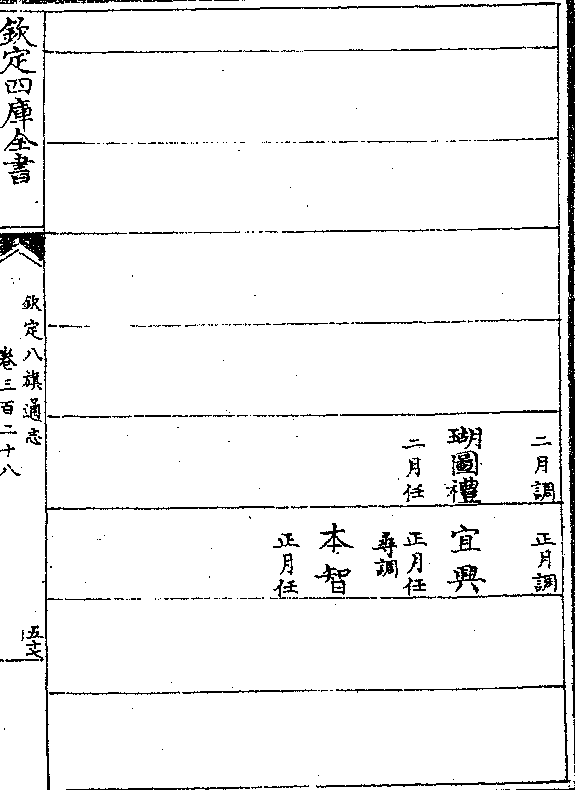 二月調
瑚圖禮
二月任
正月調
宜興
正月任
尋調
本智
正月任
欽定四庫全書
欽定八旗通志
卷三百二十八